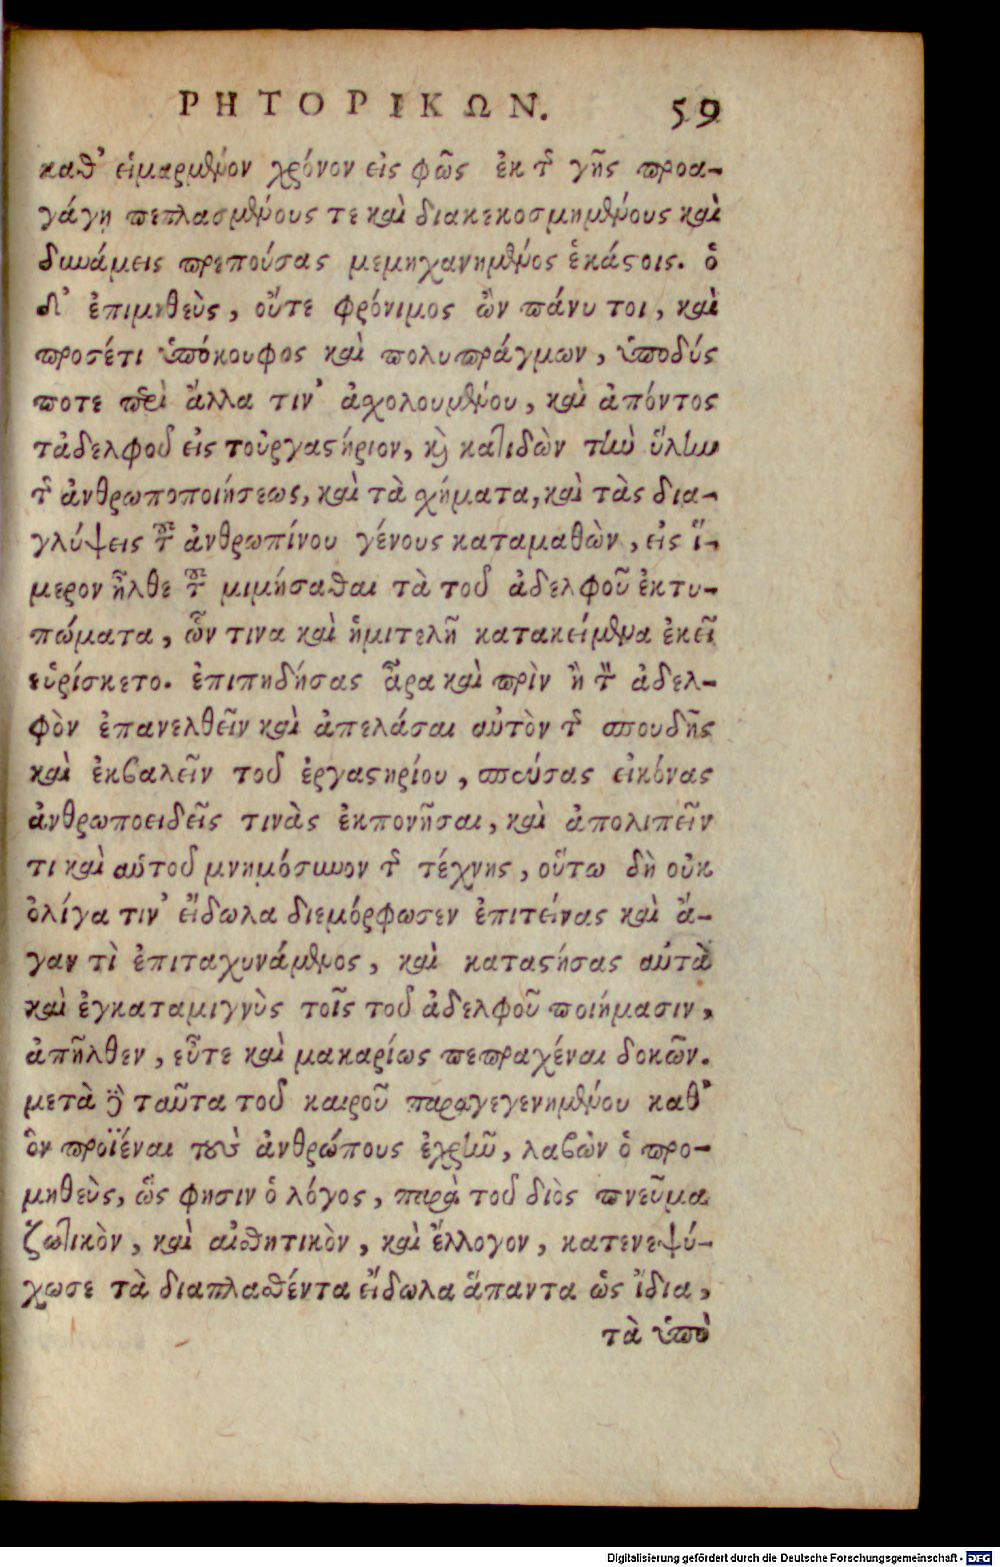 ΡΗΤΟΡΙΚΩΝ. 59
καθ' εἱμαρμένον χρόνον εἰς φῶς ἐκ τῆς γῆς προα-
γάγῃ πεπλασμένους τε καὶ διακεκοσμημένους καὶ
δυνάμεις πρεπούσας μεμηχανημένος ἑκάστοις. ὁ
δ' ἐπιμηθεὺς, οὔτε φρόνιμος ὢν πάνυ τοι, καὶ
προσέτι ὑπόκουφος καὶ πολυπράγμων, ὑποδύς
ποτε περὶ ἄλλα τιν' ἀσχολουμένου, καὶ ἀπόντος
τἀδελφοῦ εἰς τοὐργαστήριον, καὶ κατιδὼν τὴν ὕλην
τῆς ἀνθρωποποιήσεως, καὶ τὰ σχήματα, καὶ τὰς δια-
γλύψεις τοῦ ἀνθρωπίνου γένους καταμαθὼν, εἰς ἵ-
μερον ἦλθε τοῦ μιμήσασθαι τὰ τοῦ ἀδελφοῦ ἐκτυ-
πώματα, ὧν τινα καὶ ἡμιτελῆ κατακείμενα ἐκεῖ
εὑρίσκετο. ἐπιπηδήσας ἆρα καὶ πρὶν ἢ τὸν ἀδελ-
φὸν ἐπανελθεῖν καὶ ἀπελάσαι αὐτὸν τῆς σπουδῆς
καὶ ἐκβαλεῖν τοῦ ἐργαστηρίου, σπεύσας εἰκόνας
ἀνθρωποειδεῖς τινὰς ἐκπονῆσαι, καὶ ἀπολιπεῖν
τι καὶ αὑτοῦ μνημόσυνον τῆς τέχνης, οὕτω δὴ οὐκ
ὀλίγα τιν' εἴδωλα διεμόρφωσεν ἐπιτείνας καὶ ἄ-
γαν τὶ ἐπιταχυνάμενος, καὶ καταστήσας αὐτὰ
καὶ ἐγκαταμιγνὺς τοῖς τοῦ ἀδελφοῦ ποιήμασιν,
ἀπῆλθεν, εὖτε καὶ μακαρίως πεπραχέναι δοκῶν.
μετὰ δὲ ταῦτα τοῦ καιροῦ παραγεγενημένου καθ'
ὃν προϊέναι τοὺς ἀνθρώπους ἐχρῆν, λαβὼν ὁ προ-
μηθεὺς, ὥς φησιν ὁ λόγος, παρὰ τοῦ διὸς πνεῦμα
ζωτικὸν, καὶ αἰσθητικὸν, καὶ ἔλλογον, κατενεψύ-
χωσε τὰ διαπλασθέντα εἴδωλα ἅπαντα ὡς ἴδια,
τὰ ὑπὸ
Digitalisierung gefördert durch die Deutsche Forschungsgemeinschaft - DFG